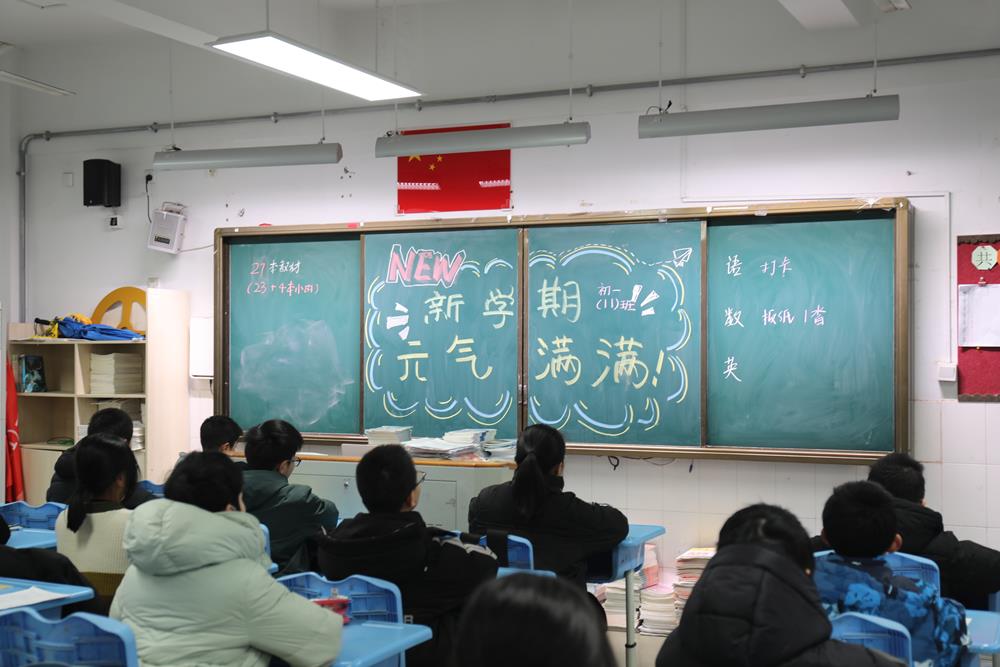 27本教材
(23+4本小册)
NEW
新学期
初一
(11)班
元气满满!
语 打卡
数 报纸1沓
英
共